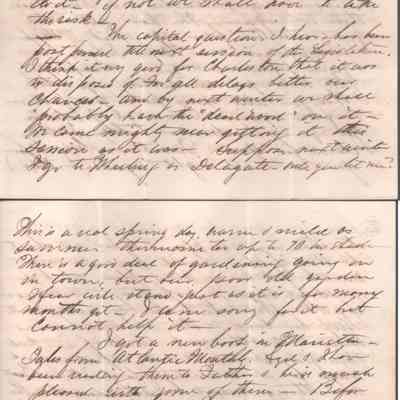 to it - if not we shall have to take
the risk -
The capital question I hear has been
postponed till next session of the Legislature.
I think it very good for Charleston that it was
so disposed of for all delays better our
chances - and by next winter we shall
probably have the "dead wood" on it -
We came mighty near getting it this
session as it was - Suppose next winter
I go to Wheeling as Delegate - will you let me?
This is a real spring day, warm & mild as
summer thermometer up to 70 in shade
There is a good deal of gardening going on
in town, but our poor old garden
I fear will stand just as it is for many
months yet - I am sorry for it but
cannot help it -
I got a new book in Marietta -
Tales from Atlantic Monthly. Syd & I have
been reading them to Father & he is much
pleased with some of them - Before